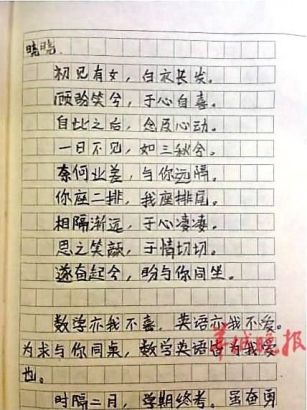 晓晓
初见有女，白衣长发。
顾盼笑兮，于心自喜。
自此之后，念及心动。
一日不见，如三秋兮。
奈何业差，与你远隔。
你座二排，我座排尾。
相隔渐远，于心凄凄。
思之笑颜，于情切切。
遂自起今，盼与你同坐。
数学亦我不喜，英语亦我不爱。
为求与你同桌，数学英语皆为我爱
也。
时隔二月，学期终考。虽奋勇
羊城晚报